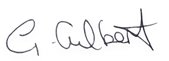 G. Gilbert